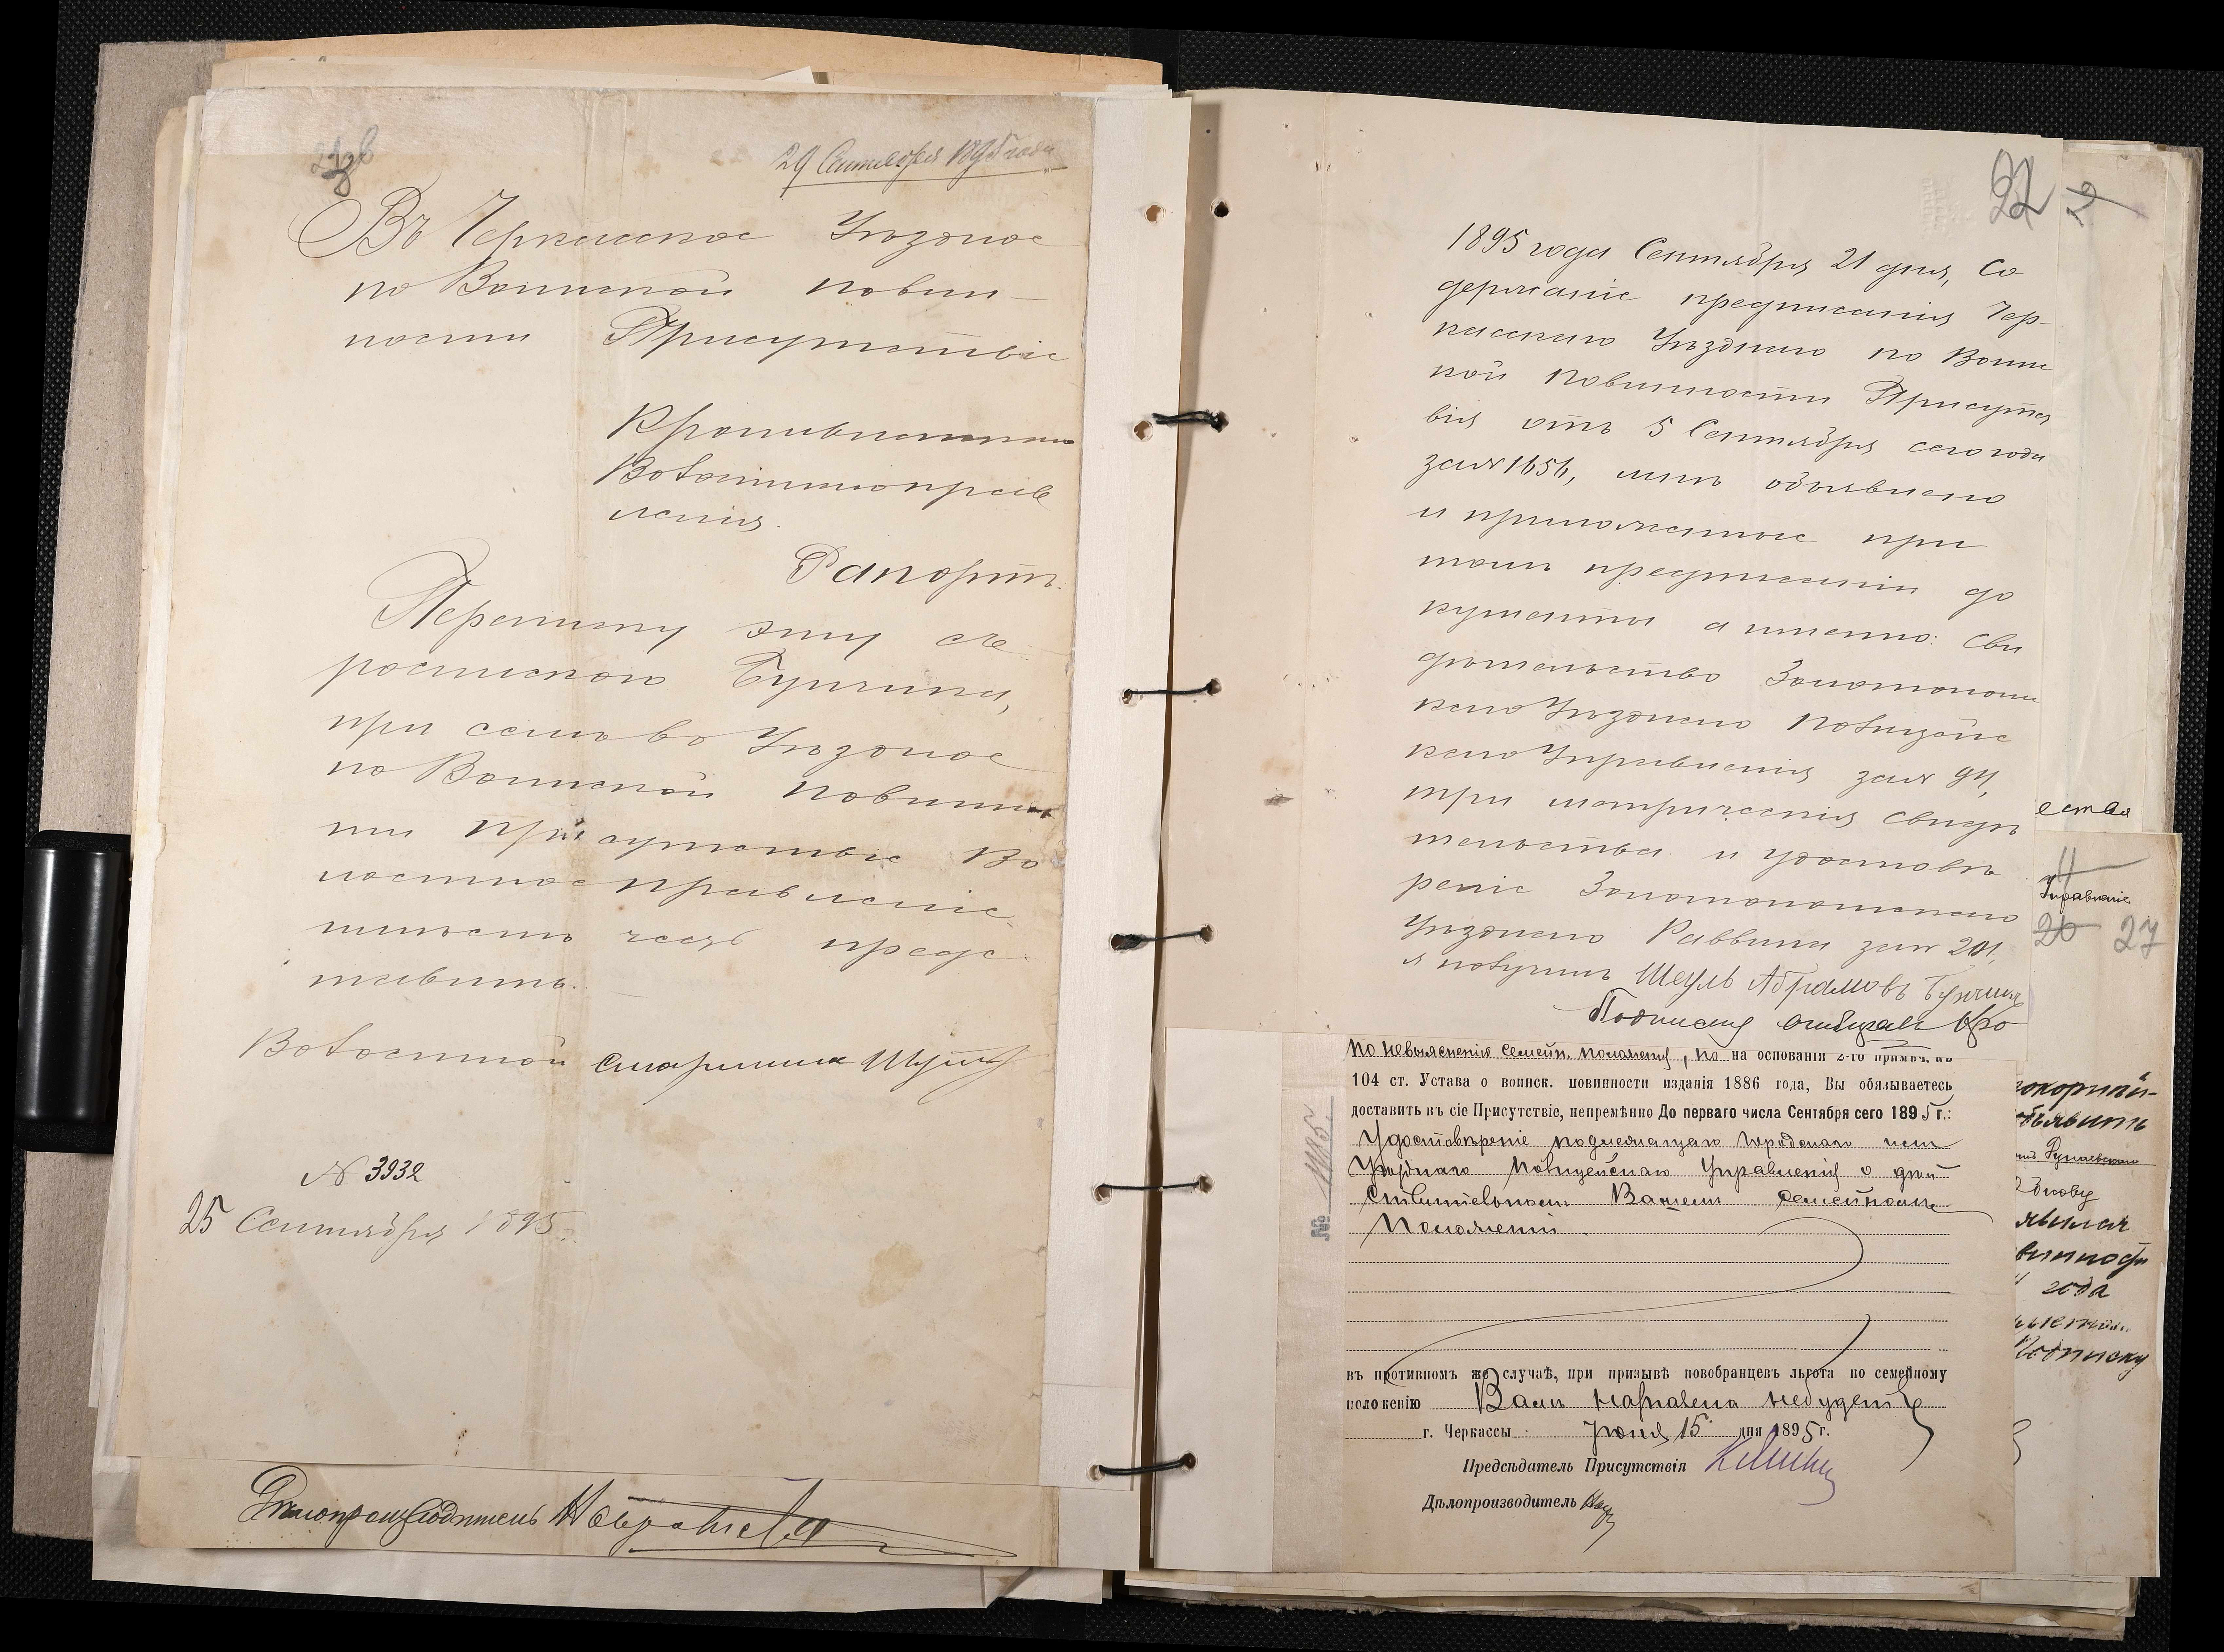 29 Сентября 1895 года
Въ Черкасское Уѣздное
по Воинской повин-
ности Присутствіе
Волостного прав
ленія.
Рапортъ.
Переписку эту съ
роспискою Бунчина,
при семъ въ Уѣздное
по Воинской повинно
ти присутствіе Во
лостное правленіе
имѣетъ честь предс
тавить.
Волостной Старшина
№ 3932
25 Сентября 1895
Дѣлопроизводитель
22
1895 года Сентября 21 дня, Со
держаніе предписанія Чер-
касскаго Уѣзднаго по Воинс
кой Повинности Присутст
вія отъ 5 Сентября сего года
за № 1656, мнѣ объявлено
и приложенные при
томъ предписаніи до
кументы а именно: Сви
дѣтельство Золотоношс
каго Уѣзднаго Полицейс
каго Управленія за № 94,
три метрическія свидѣ
тельства и удостовѣ
реніе Золотоношскаго
Уѣзднаго Раввина за № 201,
я получилъ Шеуль Абрамовъ Бунчинъ
Подписку отбиралъ
по невыясненію семейн. положенія, но на основаніи 2-го примѣч. къ
104 ст. Устава о воинск. повинности изданія 1886 года, Вы обязываетесь
доставить въ сіе Присутствіе, непремѣнно До перваго числа Сентября сего 1895 г.:
Удостовѣреніе подлежащаго Городскаго или
Уѣзднаго Полицейскаго Управленія о дѣй
ствительномъ Вашемъ семейномъ
положеніи.
№ 1105.
въ противномъ же случаѣ, при призывѣ новобранцевъ льгота по семейному
положенію Вамъ дарована небудетъ
г. Черкассы Іюня 15 дня 1895 г.
Предсѣдатель Присутствія
Дѣлопроизводитель
ества
11
Управленіе
26 27
покорнѣй-
объявить
явился
винности
года
Подписку